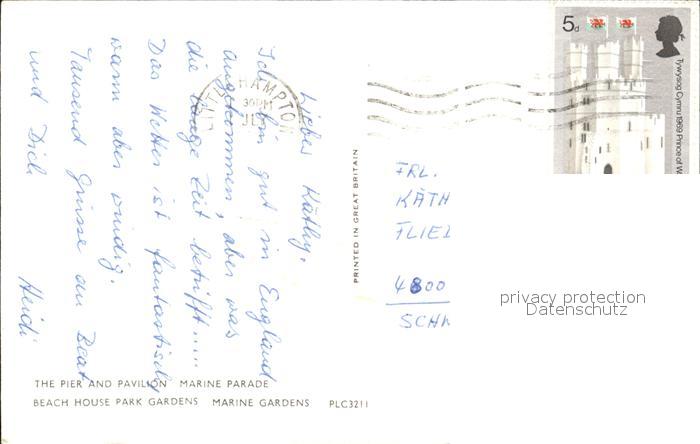 Liebes Käthy,
Ich bin gut in England
angekommen, aber was
die lange Zeit betrifft.....
Das Wetter ist fantastisch,
warm aber windig.
Tausend Grüsse an Beat
und Dich
Heidi
THE PIER AND PAVILION MARINE PARADE
BEACH HOUSE PARK GARDENS MARINE GARDENS PLC3211
PRINTED IN GREAT BRITAIN
HAMPTON
30PM
JLY
5d
Tywysog Cymru 1969 Prince of W
FRL.
KÄTH
FLIEL
4800
SCHW
privacy protection
Datenschutz